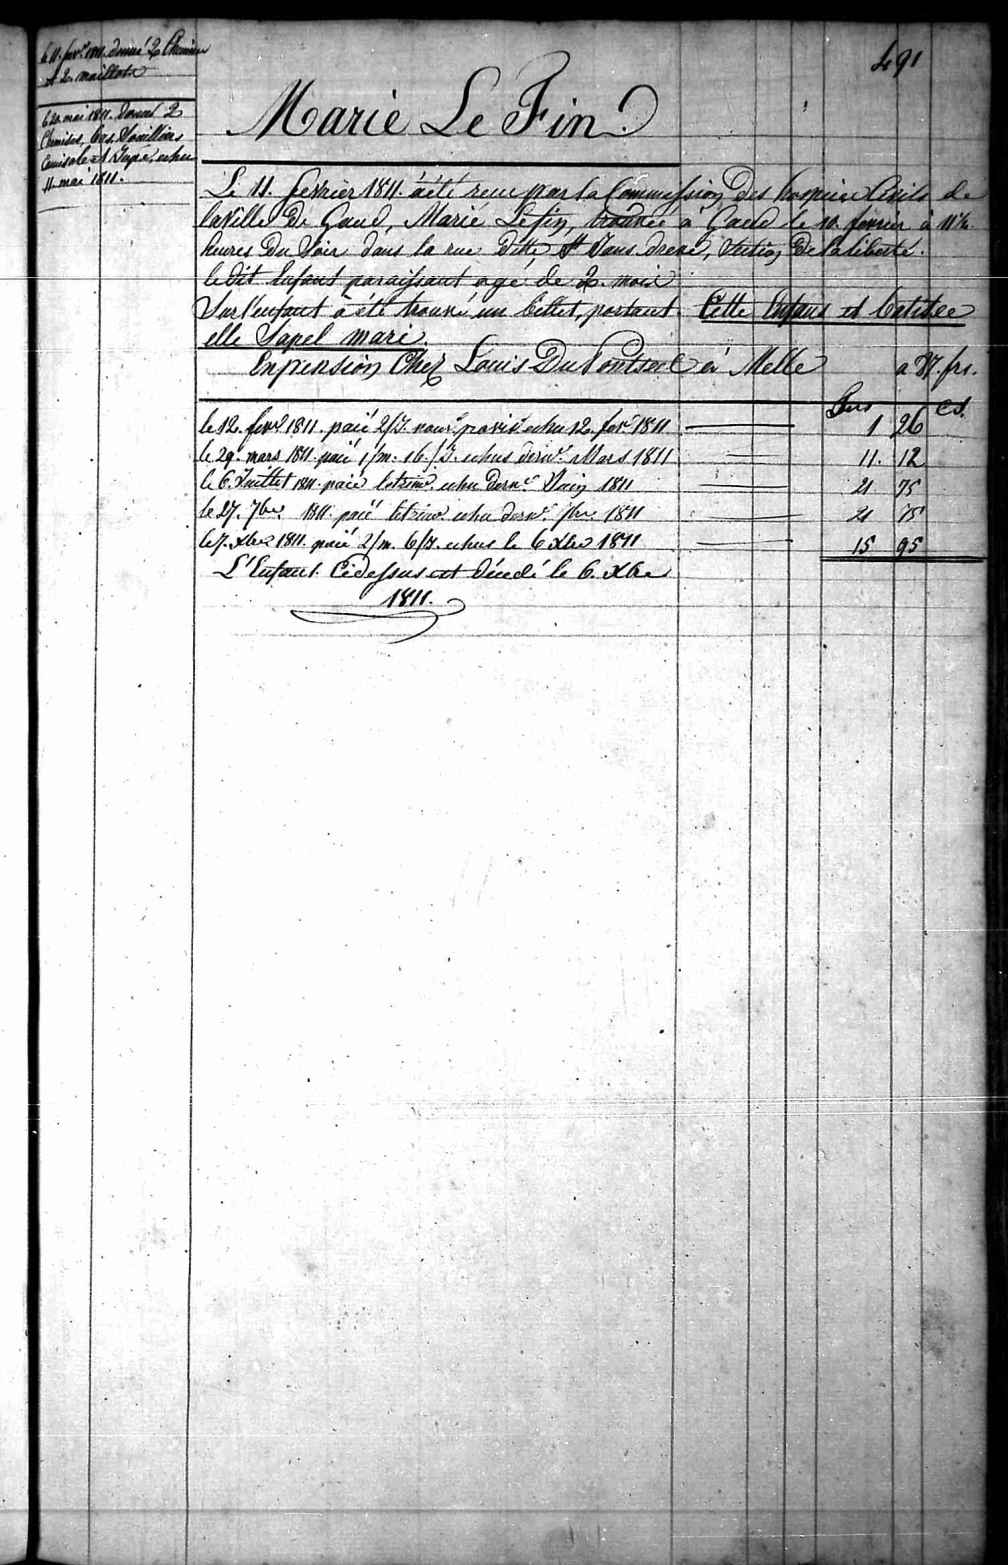 491
le 11. fevr. 1811. donné 2 Chemises
et 2. maillots
le 20. mai 1811. Donné 2
Chemises, bas, Souilliers
Camisole et Jupe, echu
11 mai 1811.
Marie Le Fin
Le 11. fevrier 1811. a été recu par la Commission Des hospices Civils de
la Ville De Gand, Marie Lefin, trouvée à Gand le 10. fevrier à 11½
heures Du Soir dans la rue Ditte St Jans dreve, Section De la liberté.
le dit Enfant paraissant agé de 2. mois
Sur l'enfant a été trouvé un billet, portant Cette Enfans et batisee
elle Sapel mari.
En pension Chez Louis Du Pontseel à Melle a 87. frs.
frcs cs.
le 12. fevr. 1811. paié 2/J. nour. provis. echu 12. fevr 1811 1 26
le 29. mars 1811. paié 1/m. 16./J. echus dern. Mars 1811 11. 12
le 6. Juillet 1811. paié le trim. echu dern. Juin 1811 21 75
le 27. 7bre. 1811. paié le trim. echu dern. 7bre. 1811 21 75
le 7. Xbre 1811. paié 2/m. 6/J. echus le 6 Xbre 1811 15 95
L'Enfant Cidessus est décedé le 6. Xbre
1811.